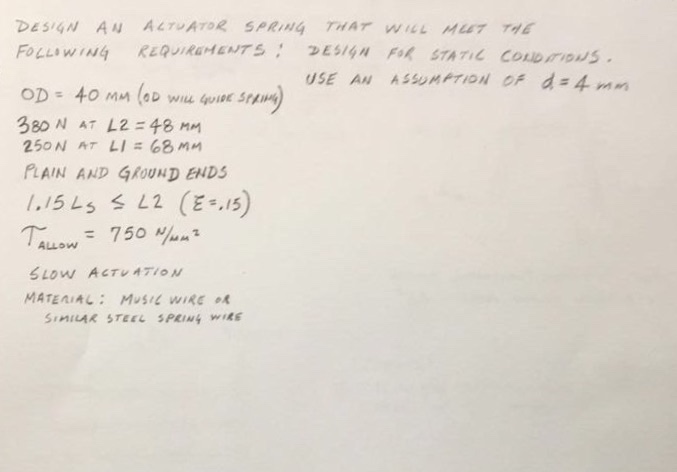 DESIGN AN ACTUATOR SPRING THAT WILL MEET THE
FOLLOWING REQUIREMENTS: DESIGN FOR STATIC CONDITIONS.
USE AN ASSUMPTION OF d = 4 mm
OD = 40 MM (OD WILL GUIDE SPRING)
380 N AT L2 = 48 MM
250 N AT L1 = 68 MM
PLAIN AND GROUND ENDS
1.15 Ls ≤ L2 (ξ = .15)
τ ALLOW = 750 N/mm²
SLOW ACTUATION
MATERIAL: MUSIC WIRE OR
SIMILAR STEEL SPRING WIRE